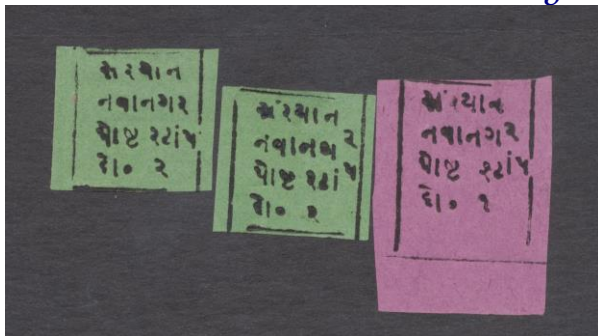 સંસ્થાન
નવાનગર
પોષ્ટ સ્ટાંપ
દો૦ ૨
સંસ્થાન
નવાનગર
પોષ્ટ સ્ટાંપ
દો૦ ૨
સંસ્થાન
નવાનગર
પોષ્ટ સ્ટાંપ
દો૦ ૧